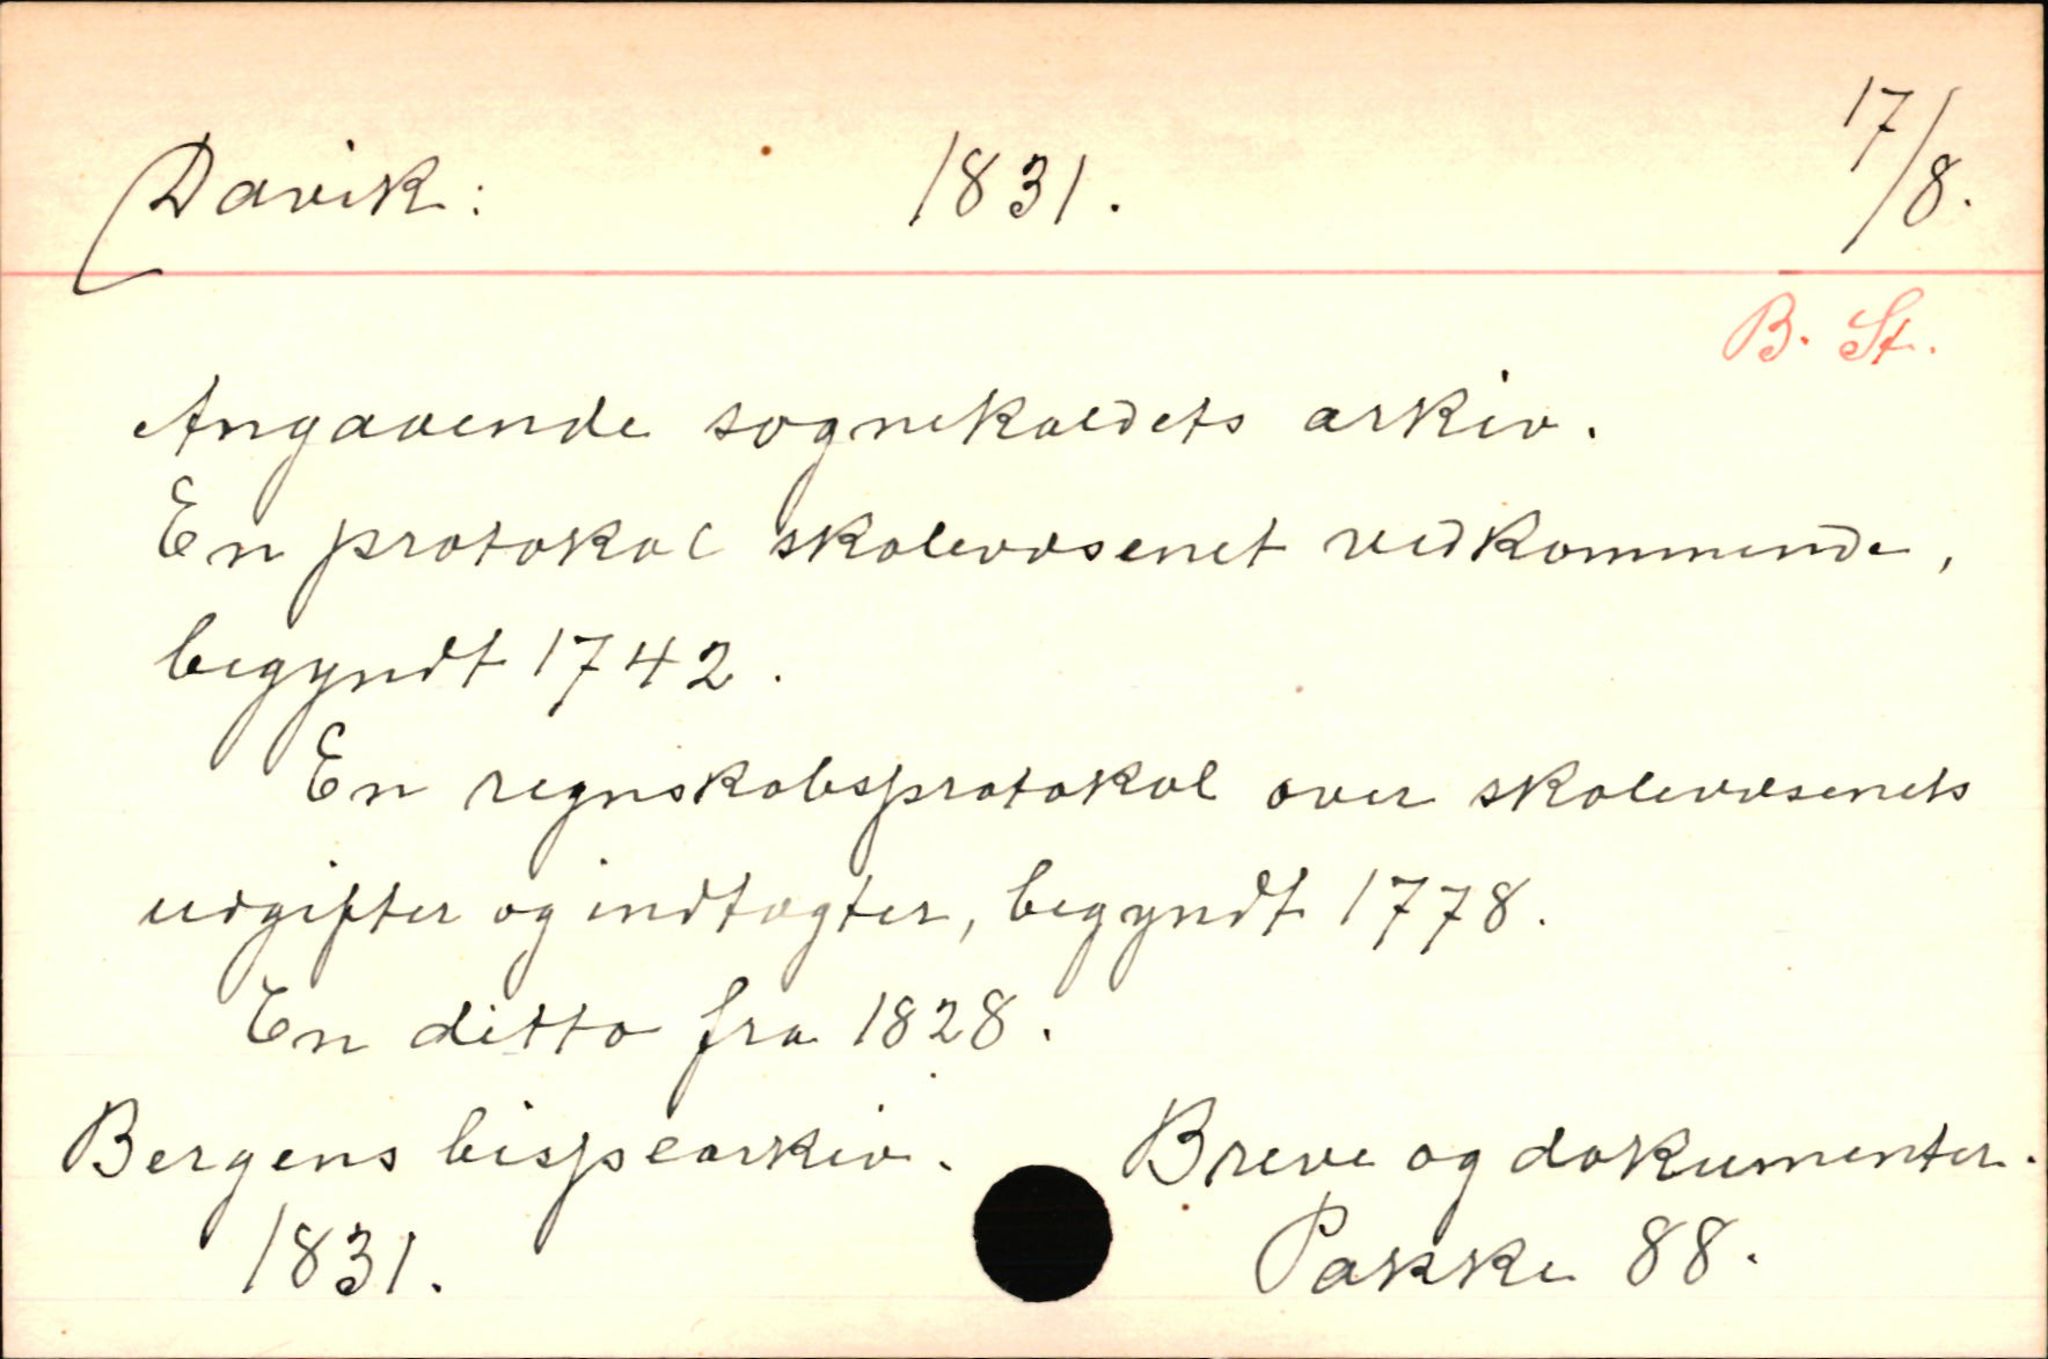 Davik: 1831. 17/8.
B. St.
Angaaende sognekaldets arkiv.
En protokol skolevæsenet vedkommende,
begyndt 1742.
En regnskabsprotokol over skolevæsenets
udgifter og indtægter, begyndt 1778.
En ditto fra 1828.
Bergens bispearkiv. Breve og dokumenter.
1831. Pakke 88.